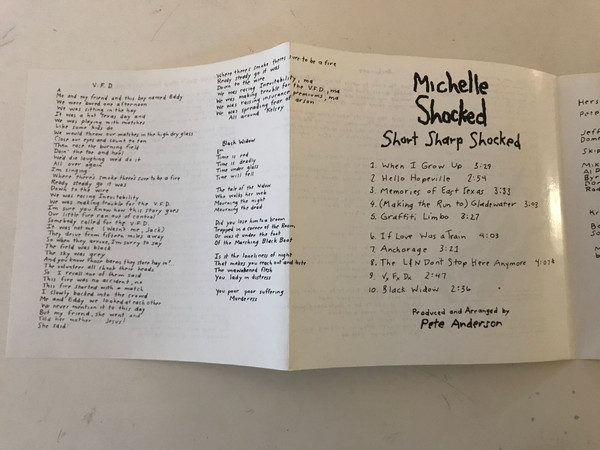 V.F.D
A
Me and my friend and this boy named Eddy
We were bored one afternoon
We was sitting in the hay
It was a hot Texas day and
We was playing with matches
Like some kids do
We would throw our matches in the high dry grass
Close our eyes and count to ten
Then race the burning field
Doin' the toe and heel
We'd die laughing we'd do it
All over again
I'm singing
Where there's smoke there's sure to be a fire
Ready steady go it was
Down to the wire
We was racing Inevitability
We was making trouble for the V.F.D.
I'm sure you know how this story goes
Our little fire ran out of control
Somebody called for the V.F.D.
It was not me (wasn't me, Jack)
They drive from fifteen miles away
So when they arrive, I'm sorry to say
The field was black
The sky was grey
And you know those barns they store hay in?
The volunteers all shook their heads
So I recall one of them said
This fire was no accident, no
This fire started with a match
I slowly backed into the crowd
Me and Eddy we looked at each other
We never mention it to this day
But my friend, she went and
Told her mother Jesus!
She said
Where there's smoke there's sure to be a fire
Ready steady go it was
Down to the wire
We was racing Inevitability, ma
We was making trouble for the V.F.D., ma
We was raising insurance premiums, ma
We was spreading fear of arson
All around Kelsey
Black Widow
Time is red
Time is deadly
Time under glass
Time will tell
The tale of the Widow
Who walks her web
Mourning the night
Mourning the dead
Did you lose him to a broom
Trapped in a corner of the Room
Or was it under the foot
Of the Marching Black Boot
Is it the loneliness of night
That makes you reach out and bite
The unwebbed flesh
You lady in distress
You poor poor suffering
Murderess
Michelle
Shocked
Short Sharp Shocked
1. When I Grow Up 3:29
2. Hello Hopeville 2:54
3. Memories of East Texas 3:33
4. (Making the Run to) Gladewater 3:03
5. Graffiti Limbo 3:27
6. If Love Was a Train 4:03
7. Anchorage 3:21
8. The L&N Don't Stop Here Anymore 4:02
9. V. F. D. 2:47
10. Black Widow 2:36
Produced and Arranged by
Pete Anderson
Hers
Pete
Jeff
Dome
Skip
Mik
Al P
Byr
Don
Rod
Kr
B
Jo
M
b